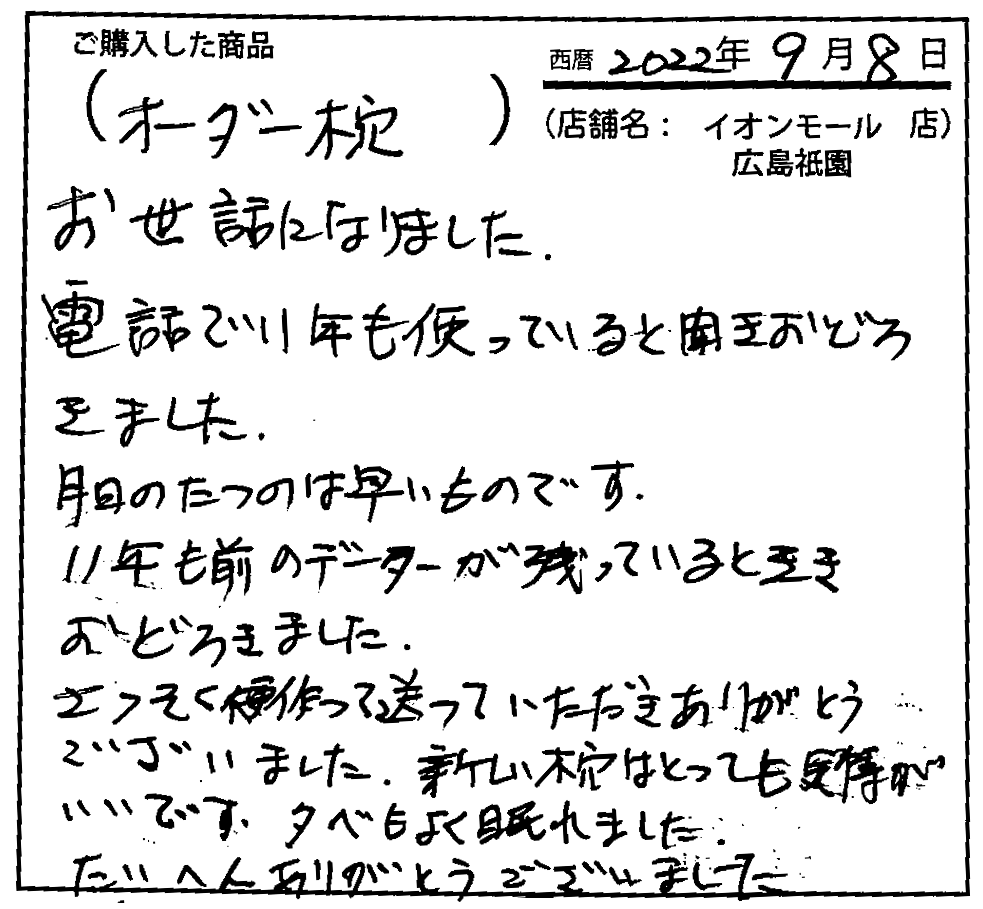 ご購入した商品
西暦 2022年 9月 8日
(オーダー枕)
(店舗名: イオンモール 店)
広島祇園
お世話になりました.
電話で11年も使っていると聞きおどろ
きました.
月日のたつのは早いものです.
11年も前のデーターが残っていると
おどろきました.
さっそく 作って送っていただきありがとう
ございました. 新しい枕はとっても が
いいです. 夕べもよく眠れました.
たいへんありがとうございました